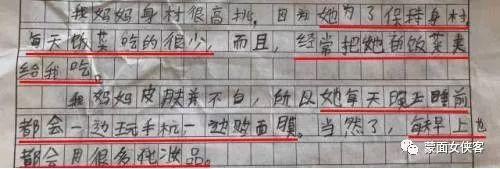 我妈妈身材很高挑。因为她为了保持身材
每天饭菜吃的很少，而且，经常把她的饭菜夹
给我吃。
我妈妈皮肤并不白，所以她每天晚上睡前
都会一边玩手机一边贴面膜。当然了，每天早上也
都会用很多化妆品。
蒙面女侠客